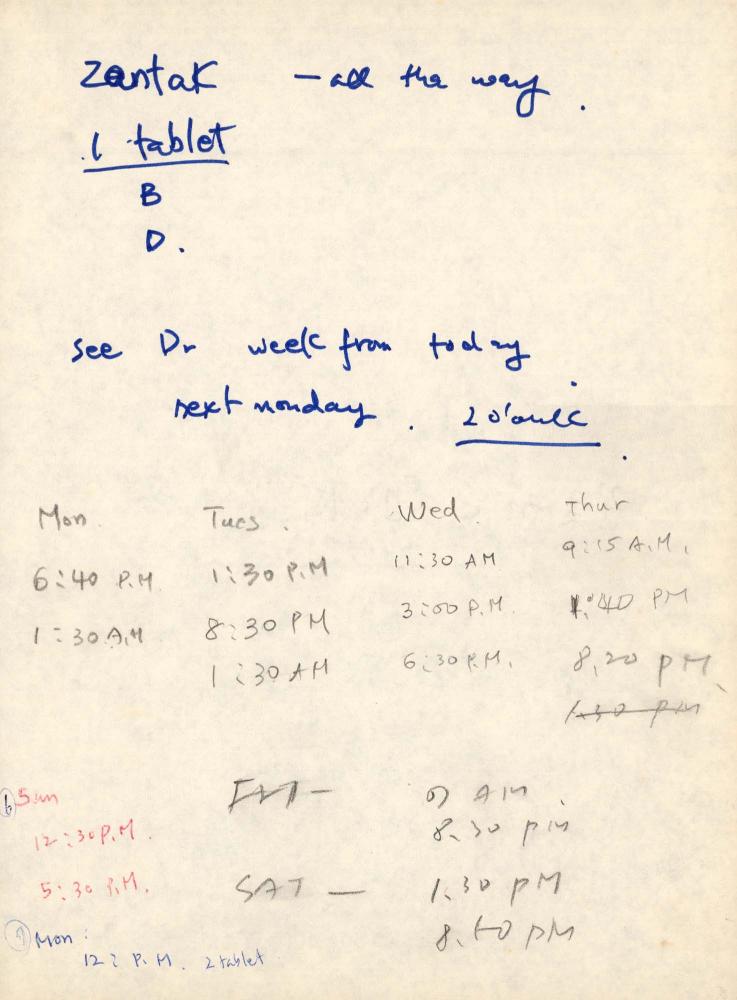 Zantak - all the way.
1 tablet
B
D.
see Dr week from today
next monday. 2 o'
Mon. Tues. Wed. Thur
6:40 P.M 1:30 P.M 11:30 AM 9:15 A.M.
1:30 A.M 8:30 PM 3:00 P.M. 1:40 PM
1:30 AM 6:30 P.M. 8.20 pm
1.30 pm
Sun
12:30 P.M.
5:30 P.M.
AM.
8.30 pm
SAT - 1.30 pM
8. pM
Mon:
12: P.M. 2 tablet